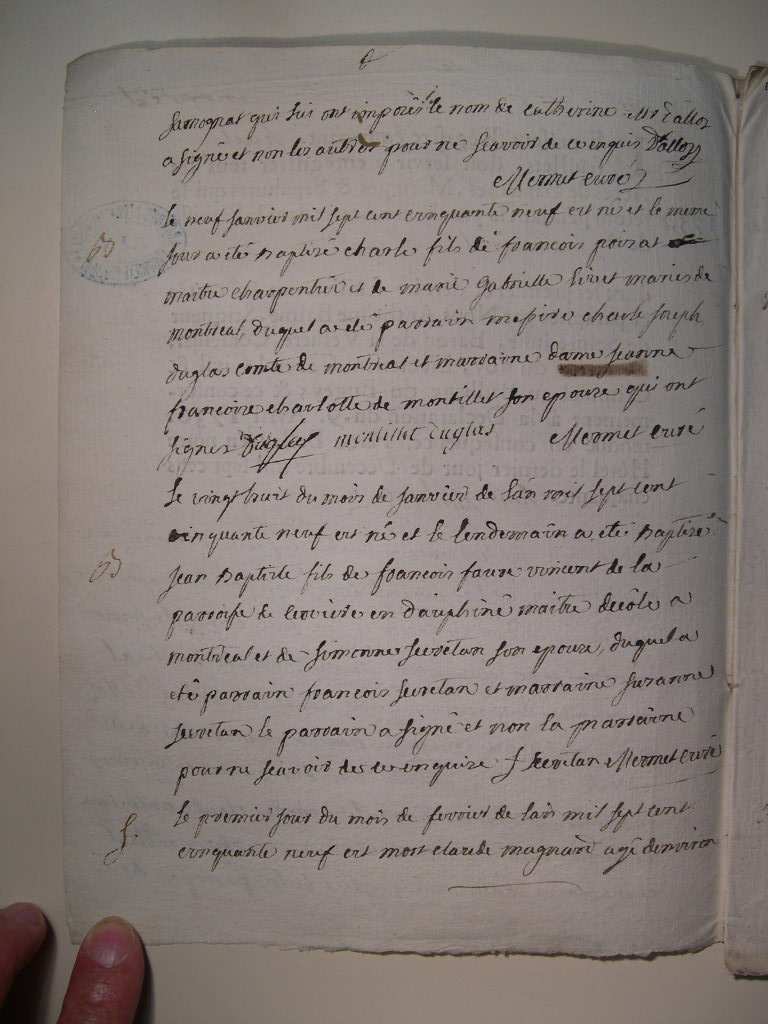 Samognat qui lui ont imposés le nom de catherine Mr Dalloz
a signé et non les autres pour ne scavoir de ce enquis Dalloz
Mermet curé
le neuf janvier mil sept cent cinquante neuf est né et le meme
jour a été baptisé charle fils de francois poizat
maitre charpentier et de marie gabrielle livet mariés de
montreal, duquel a eté parrain messire charle joseph
duglas comte de montreal et marraine dame jeanne
francoise charlotte de montillet son epouse qui ont
signes Duglas montillet duglas Mermet curé
B
Le vingt huit du mois de janvier de l'an mil sept cent
cinquante neuf est né et le lendemain a été baptisé
B
jean baptiste fils de francois faure vincent de la
paroisse de en dauphiné maitre decôle a
montreal et de simonne secretan son epouse, duquel a
eté parrain francois secretan et marraine suzanne
secretan le parrain a signé et non la marraine
pour ne scavoir de ce enquise f secretan Mermet curé
S.
le premier jour du mois de fevrier de l'an mil sept cent
cinquante neuf est mort claude magnard agé denviron